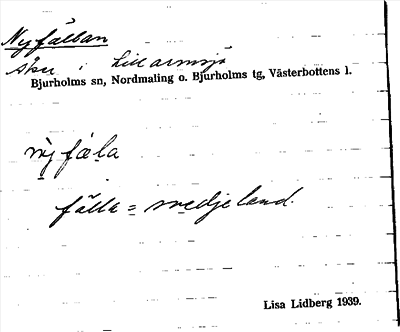 Nyfällan
Åker i Lillarmsjö
Bjurholms sn, Nordmaling o. Bjurholms tg, Västerbottens l.
nyfæla
fälla = svedjeland.
Lisa Lidberg 1939.